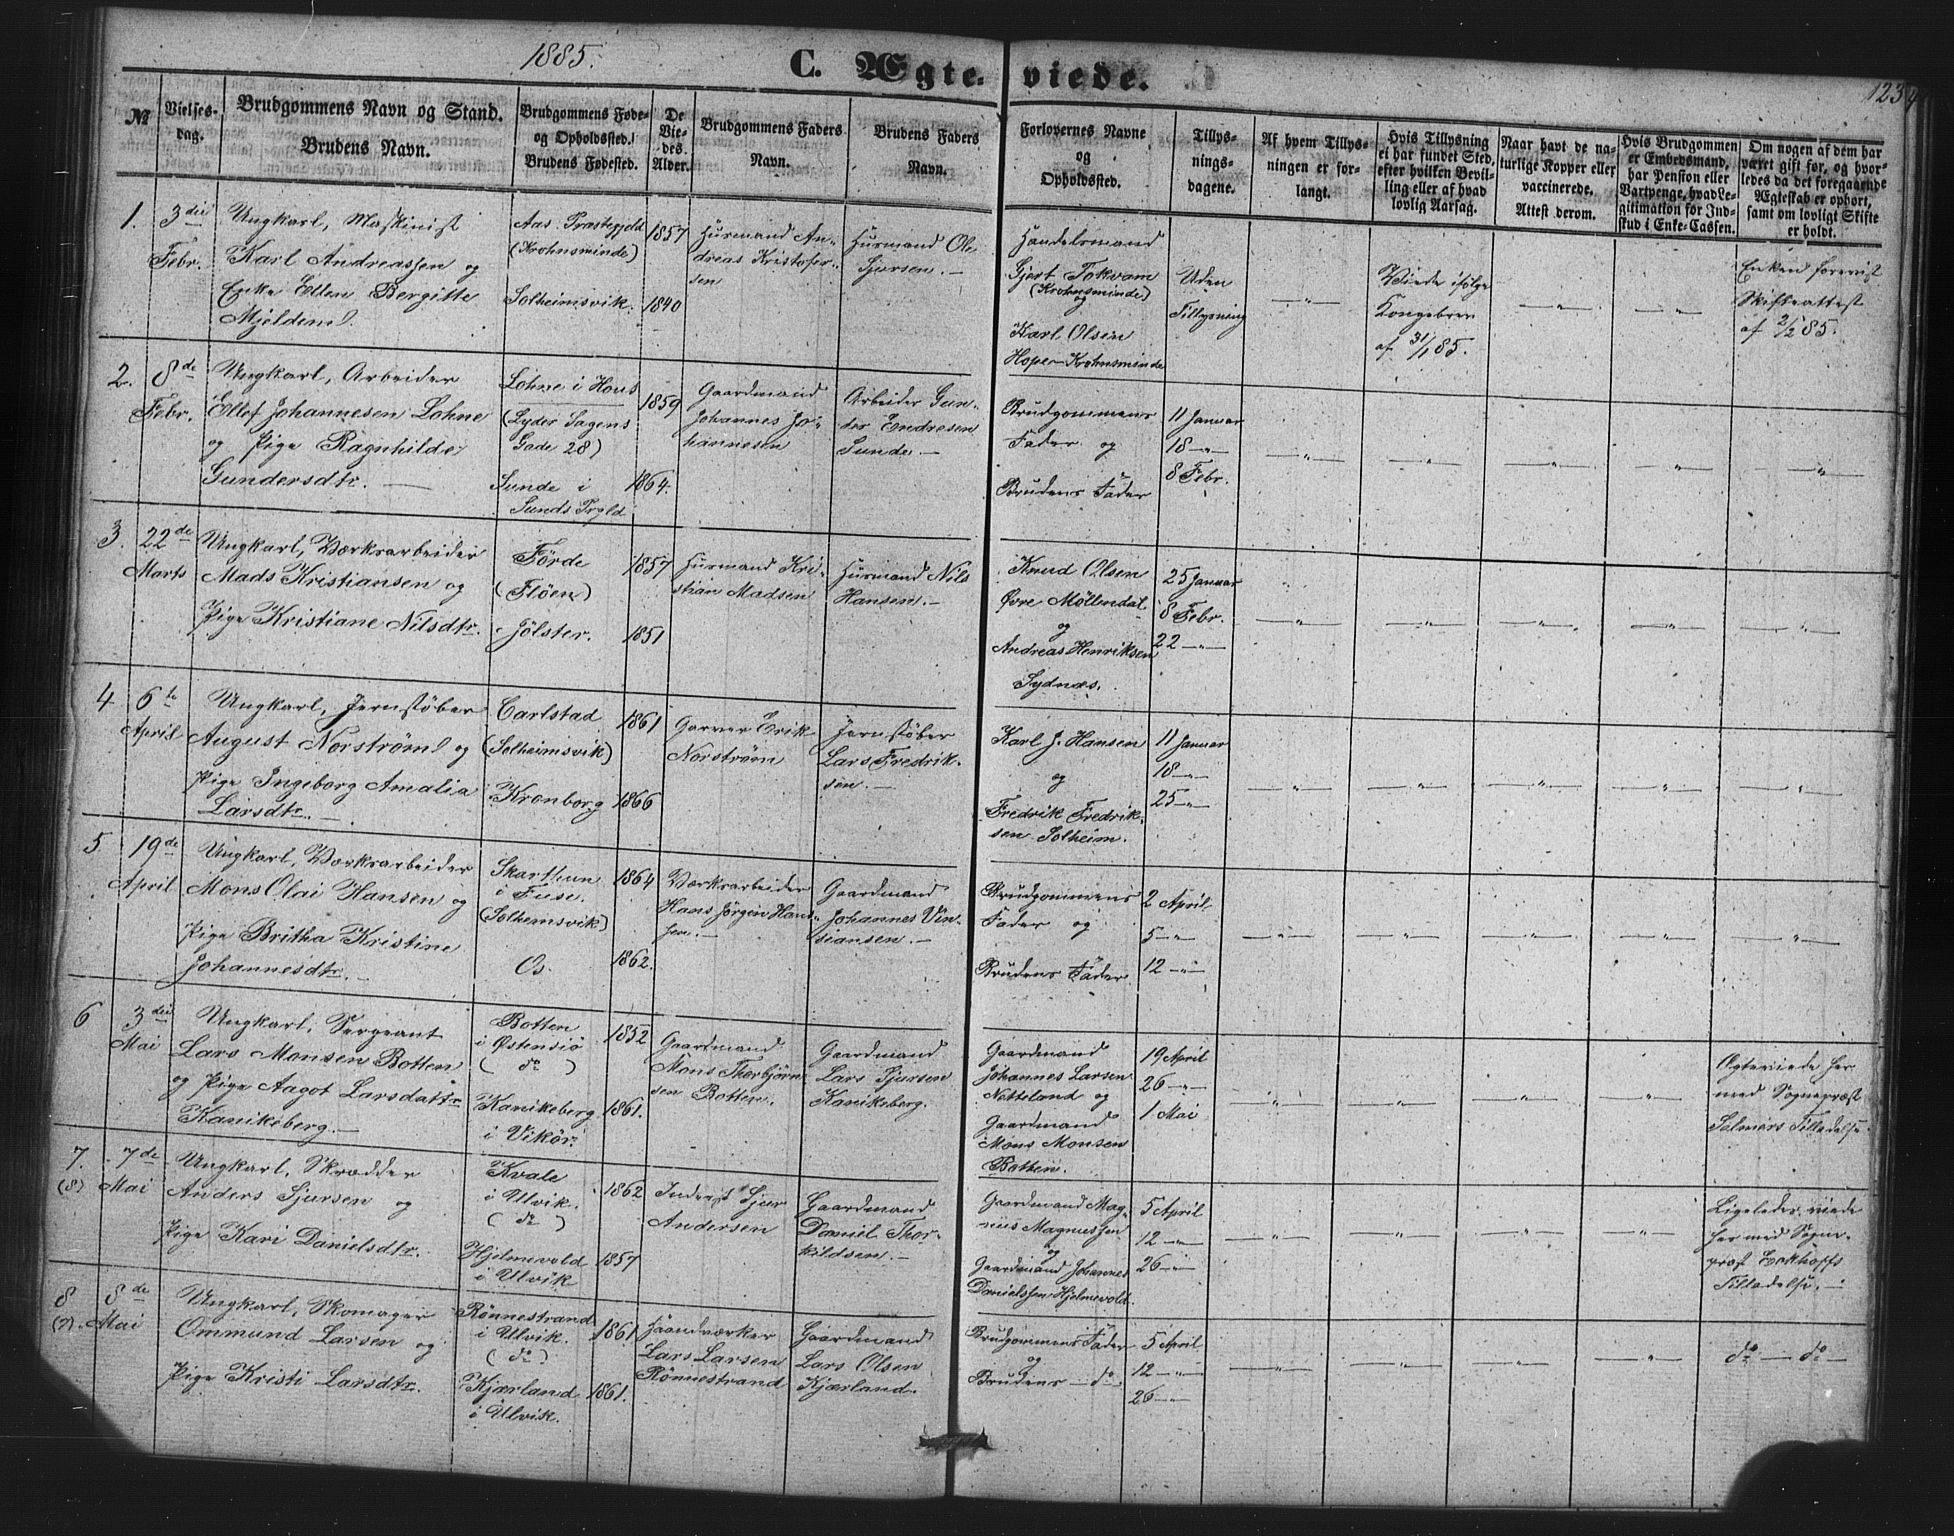 1885.
C. Ægte-viede.
123
№
Vielses-
dag.
Brudgommens Navn og Stand.
Brudens Navn.
Brudgommens Føde-
og Opholdssted.
Brudens Fødested.
De
Vie-
des
Alder.
Brudgommens Faders
Navn.
Brudens Faders
Navn.
Forlovernes Navne
og
Opholdssted.
Tillys-
nings-
dagene.
Af hvem Tillys-
ningen er for-
langt.
Hvis Tillysning
ei har fundet Sted,
efter hvilken Bevil-
ling eller af hvad
lovlig Aarsag.
Naar havt de na-
turlige Kopper eller
vaccinerede.
Attest derom.
Hvis Brudgommen
er Embedsmand,
har Pension eller
Vartpenge, hvad Le-
gitimation for Ind-
skud i Enke-Cassen.
Om nogen af dem har
været gift før, og hvor-
ledes da det foregaaende
Ægteskab er ophørt,
samt om lovligt Skifte
er holdt.
1.
3die
Febr.
Ungkarl, Maskinist
Karl Andreassen og
Enke Ellen Bergitte
Mjeldem.
Aas Præstegjeld
(Krohnsminde)
Solheimsvik.
1857
1840
Husmand An-
dreas Kristofer-
sen
Husmand Ole
Sjursen. —
Handelsmand
Gjert Tokvam
(Krohnsminde)
og
Karl Olsen
Hope - Krohnsminde
Uden
Tillysning
— " —
Viede ifølge
Kongebrev
af 31/1 85.
— " —
— " —
Enken forevist
Skifteattest
af 2/2 85.
2.
8de
Febr.
Ungkarl, Arbeider
Ellef Johannesen Lohne
og Pige Ragnhilde
Gundersdtr. —
Lohne i Hous
(Lyder Sagens
Gade 28)
Sunde i
Sunds Prgld
1859
1864.
Gaardmand
Johannes Jo-
hannesen
Arbeider Gun-
der Endresen
Sunde. —
Brudgommens
Fader og
Brudens Fader
11 Januar
18 — " —
8 Febr.
— " —
— " —
— " —
— " —
— " —
3.
22de
Marts
Ungkarl, Værksarbeider
Mads Kristiansen og
Pige Kristiane Nilsdtr.
Førde
(Fløen)
Jølster.
1857
1851
Husmand Kri-
stian Madsen
Husmand Nils
Hansen. —
Knud Olsen
Øvre Møllendal
og
Andreas Henriksen
Sydnæs.
25 Januar
8 Febr.
22 — " —
— " —
— " —
— " —
— " —
— " —
4
6te
April
Ungkarl, Jernstøber
August Norstrøm og
Pige Ingeborg Amalia
Larsdtr. —
Carlstad
(Solheimsvik)
Kronborg
1861
1866
Garver Erik
Norstrøm
Jernstøber
Lars Fredrik-
sen. —
Karl J. Hansen
og
Fredrik Fredrik-
sen Solheim.
11 Januar
18 — " —
25 — " —
— " —
— " —
— " —
— " —
— " —
5
19de
April
Ungkarl, Værksarbeider
Mons Olai Hansen og
Pige Britha Kristine
Johannesdtr. —
Skarthun
i Fuse.
(Solhemsvik)
Os.
1864
1862.
Værksarbeider
Hans Jörgen Han-
sen. —
Gaardmand
Johannes Vin-
siansen. —
Brudgommens
Fader og
Brudens Fader
2 April
5 — " —
12 — " —
— " —
— " —
— " —
— " —
— " —
6
3die
Mai
Ungkarl, Sergeant
Lars Monsen Botten
og Pige Aagot Larsdattr
Kanikeberg. —
Botten
i Østensiø
( do )
Kanikeberg
i Vikör.
1852
1861.
Gaardmand
Mons Thorbjörn-
sen Botten.
Gaardmand
Lars Sjursen
Kanikeberg.
Gaardmand
Johannes Larsen
Netteland og
Gaardmand
Mons Monsen
Botten.
19 April
26 — " —
1 Mai
— " —
— " —
— " —
— " —
Ægteviede her
med Sognepræst
Selmers Tilladelse.
7.
(8)
7de
Mai
Ungkarl, Skrædder
Anders Sjursen og
Pige Kari Danielsdtr.
Kvale
i Ulvik.
( do )
Hjelmevold
i Ulvik
1862
1857
Inderst Sjur
Andersen
Gaardmand
Daniel Thor-
kildsen. —
Gaardmand Mag-
nus Magnussen
og
Gaardmand Johannes
Danielssen Hjelmevold.
5 April
12 — " —
26 — " —
— " —
— " —
— " —
— " —
Ligeledes viede
her med Sogne-
præst Eckhoffs
Tilladelse. —
8
(7).
8de
Mai
Ungkarl, Skomager
Ommund Larsen og
Pige Kristi Larsdtr.
Rönnestrand
i Ulvik.
( do )
Kjærland
i Ulvik.
1861
1861.
Haandværker
Lars Larsen
Rönnestrand
Gaardmand
Lars Olsen
Kjærland.
Brudgommens Fader
og
Brudens — do
5 April
12 — " —
26 — " —
— " —
— " —
— " —
— " —
do — do —